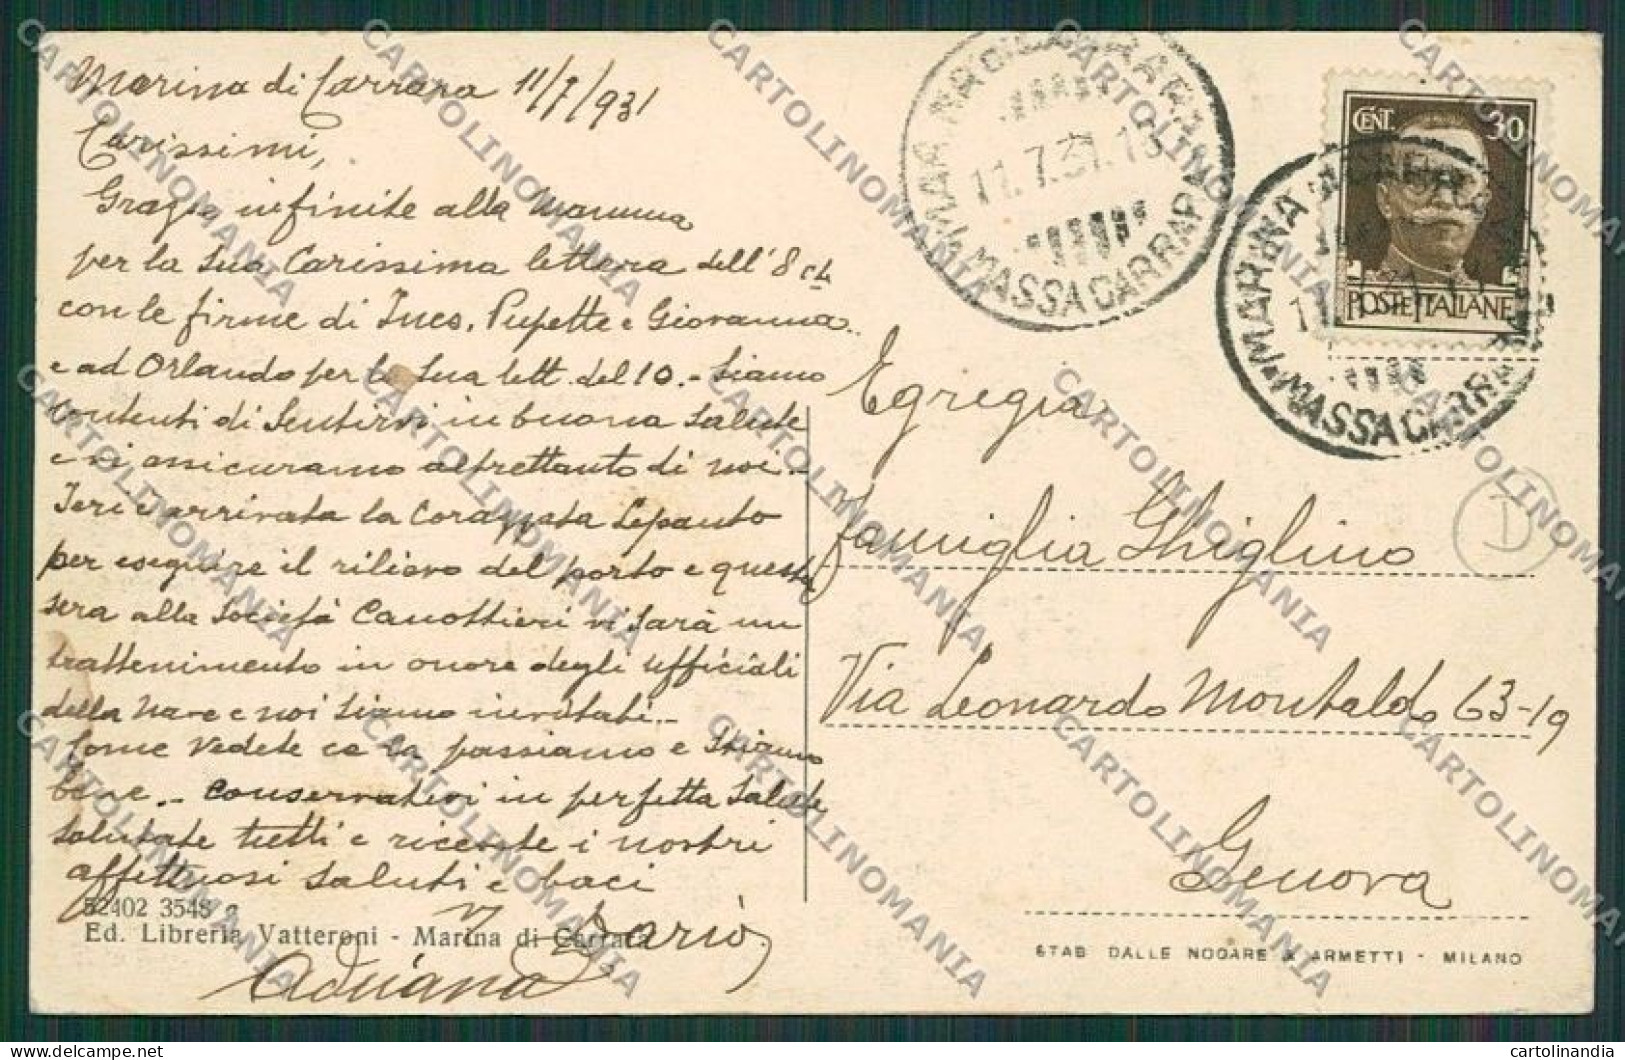 Marina di Carrara 11/7/931
Carissimi,
Grazie infinite alla Mamma
per la Sua Carissima lettera dell'8 
con le firme di Ines, Pupette e Giovanna
e ad Orlando per la Sua lett. del 10. - Siamo
contenti di Sentirvi in buona Salute
e vi assicuriamo altrettanto di noi -
Ieri è arrivata la Corazzata Lepanto
per eseguire il rilievo del porto e questa
sera alla Società Canottieri vi Sarà un
trattenimento in onore degli ufficiali
della Nave e noi Siamo invitati. -
Come vedete ce la passiamo e Stiamo
bene. - Conservatevi in perfetta Salute
Salutate tutti e ricevete i nostri
affettuosi Saluti e baci
Dario
Adriana
52402 3548
Ed. Libreria Vatteroni - Marina di Carrara
MASSA CARRARA
11.7.31.18
CENT. 30
POSTE ITALIANE
MARINA DI CARRARA
MASSA CARRARA
Egregia
famiglia Ghiglino
Via Leonardo Montaldo 63-19
Genova
D
STAB DALLE NOGARE & ARMETTI - MILANO
CARTOLINOMANIA
delcampe.net
cartolinandia